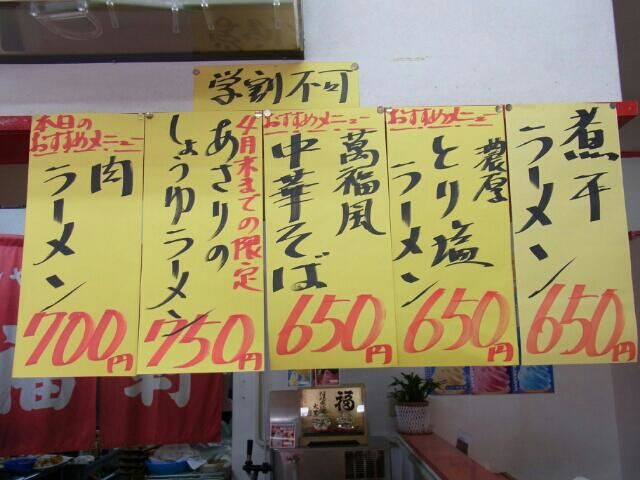 学割不可
煮干
ラーメン
650円
おすすめメニュー
濃厚
とり塩
ラーメン
650円
おすすめメニュー
萬福風
中華そば
650円
4月末までの限定
あさりの
しょうゆラーメン
750円
本日の
おすすめメニュー
肉
ラーメン
700円
福